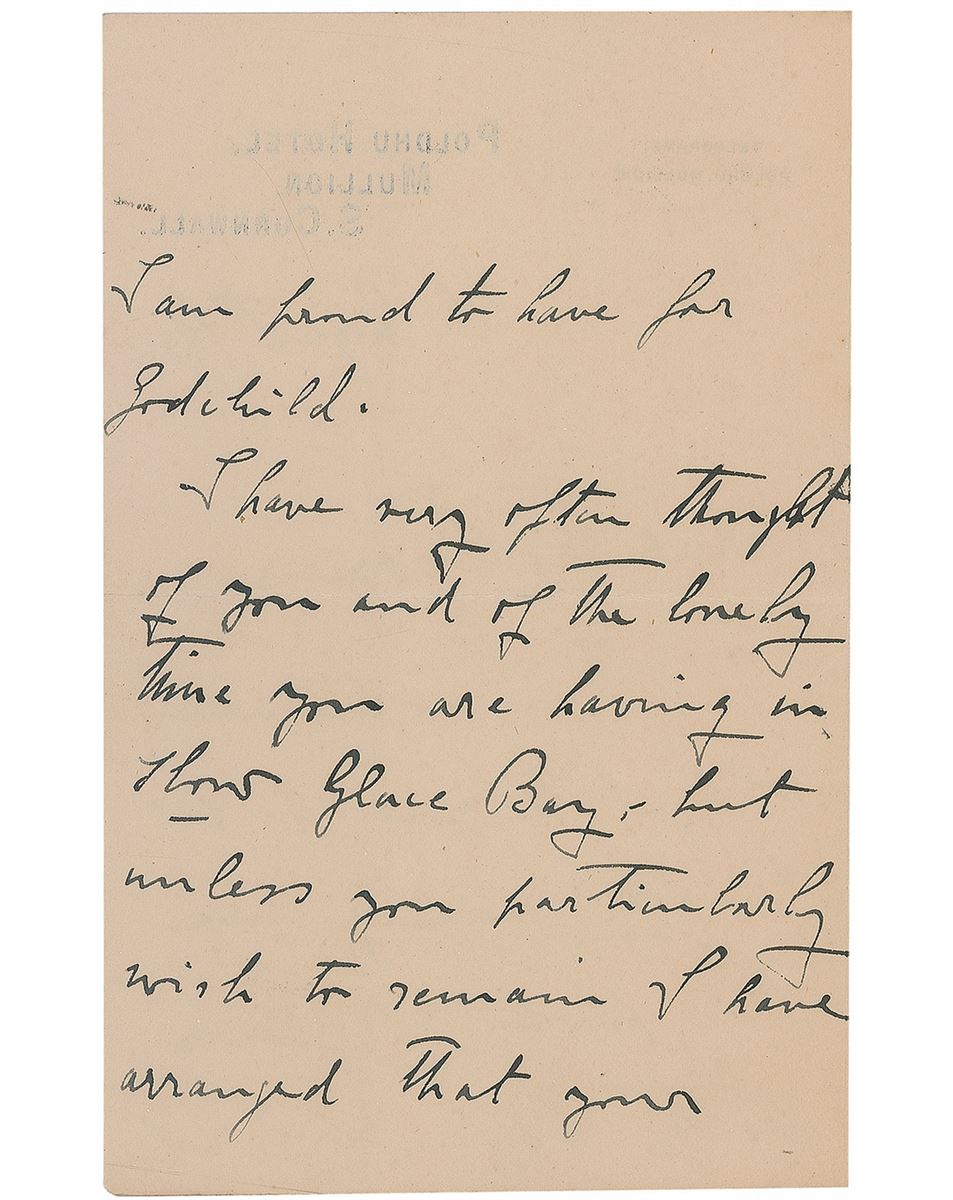 POLDHU HOTEL,
MULLION
S. CORNWALL.
I am proud to have for
Godchild.
I have very often thought
of you and of the lonely
time you are having in
slow Glace Bay, – but
unless you particularly
wish to remain I have
arranged that your